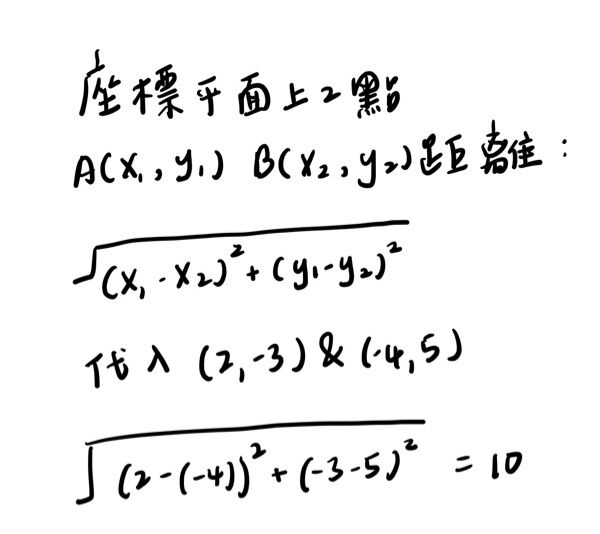 座標平面上2點
A(x₁,y₁) B(x₂,y₂)距離:
√((x₁-x₂)²+(y₁-y₂)²)
代入 (2,-3)&(-4,5)
√((2-(-4))²+(-3-5)²) = 10